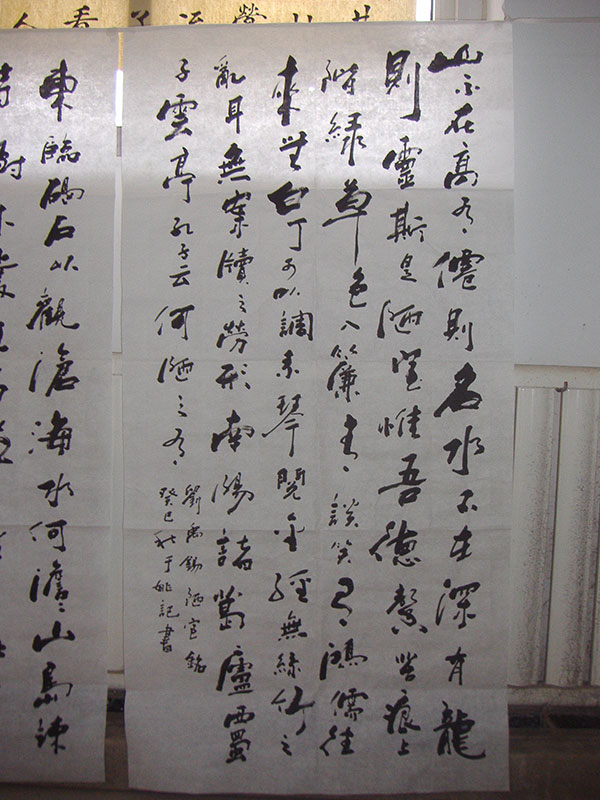 山不在高有、僊則名水不在深有龍
則靈斯是陋室惟吾德馨苔痕上
階綠草色入簾青、談笑有、鴻儒往
來無白丁可以調素琴閱金經無絲竹之
亂耳無案牘之勞形南陽諸葛廬西蜀
子雲亭孔子云何陋之有、
劉禹錫陋室銘
癸巳秋于姚記書
東臨碣石以觀滄海水何澹、山島竦